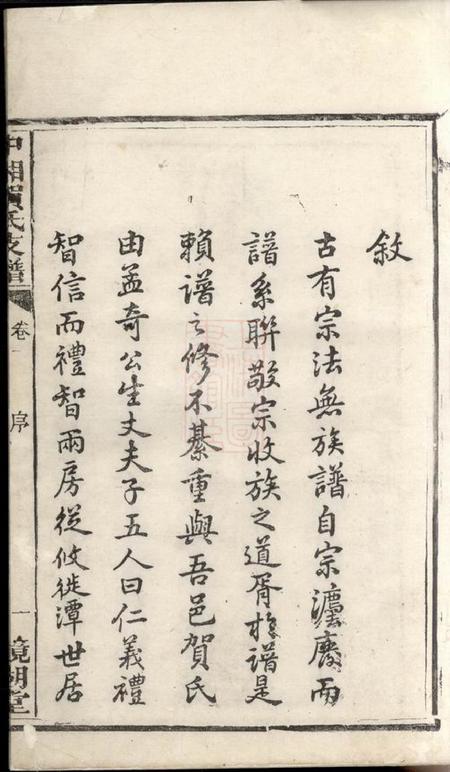 敘
古有宗法無族譜自宗灋廢而
譜系聯敬宗收族之道胥於譜是
賴譜之修不綦重與吾邑賀氏
由孟奇公生丈夫子五人曰仁義禮
智信而禮智兩房從攸徙潭世居
中湘賀氏支譜
卷一
序
一
鏡湖堂